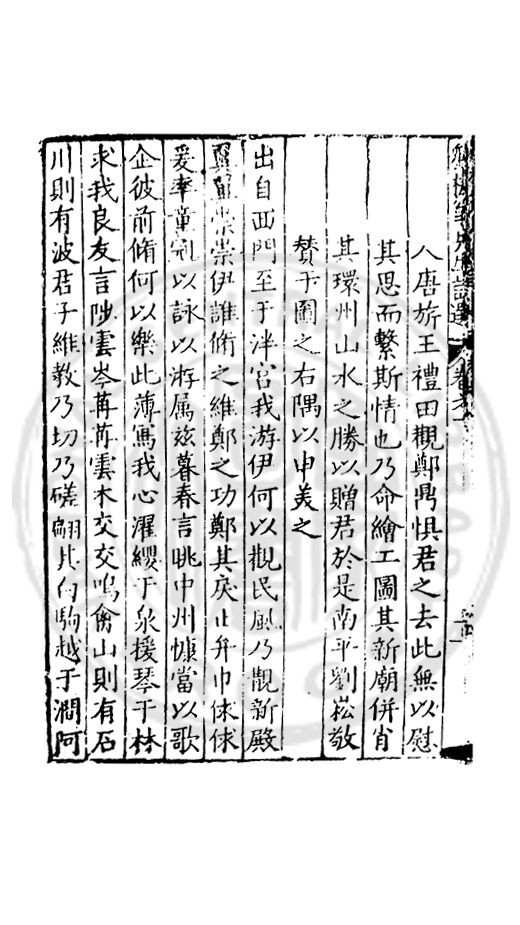 人唐旂王禮田觀鄭鼎惧君之去此無以慰
其思而繫斯情也乃命繪工圖其新廟併肖
其環州山水之勝以贈君於是南平劉崧敬
賛于圖之右隅以申美之
出自西門至于泮宮我游伊何以觀民風乃觀新殿
翼翼崇崇伊誰脩之維鄭之功鄭其戾止弁巾俅俅
爰率童冠以詠以游属兹暮春言眺中州慷當以歌
企彼前脩何以樂此薄寫我心濯纓于泉援琴于林
求我良友言陟雲岑苒苒雲木交交鳴禽山則有石
川則有波君子維教乃切乃磋翩其白駒越于澗阿